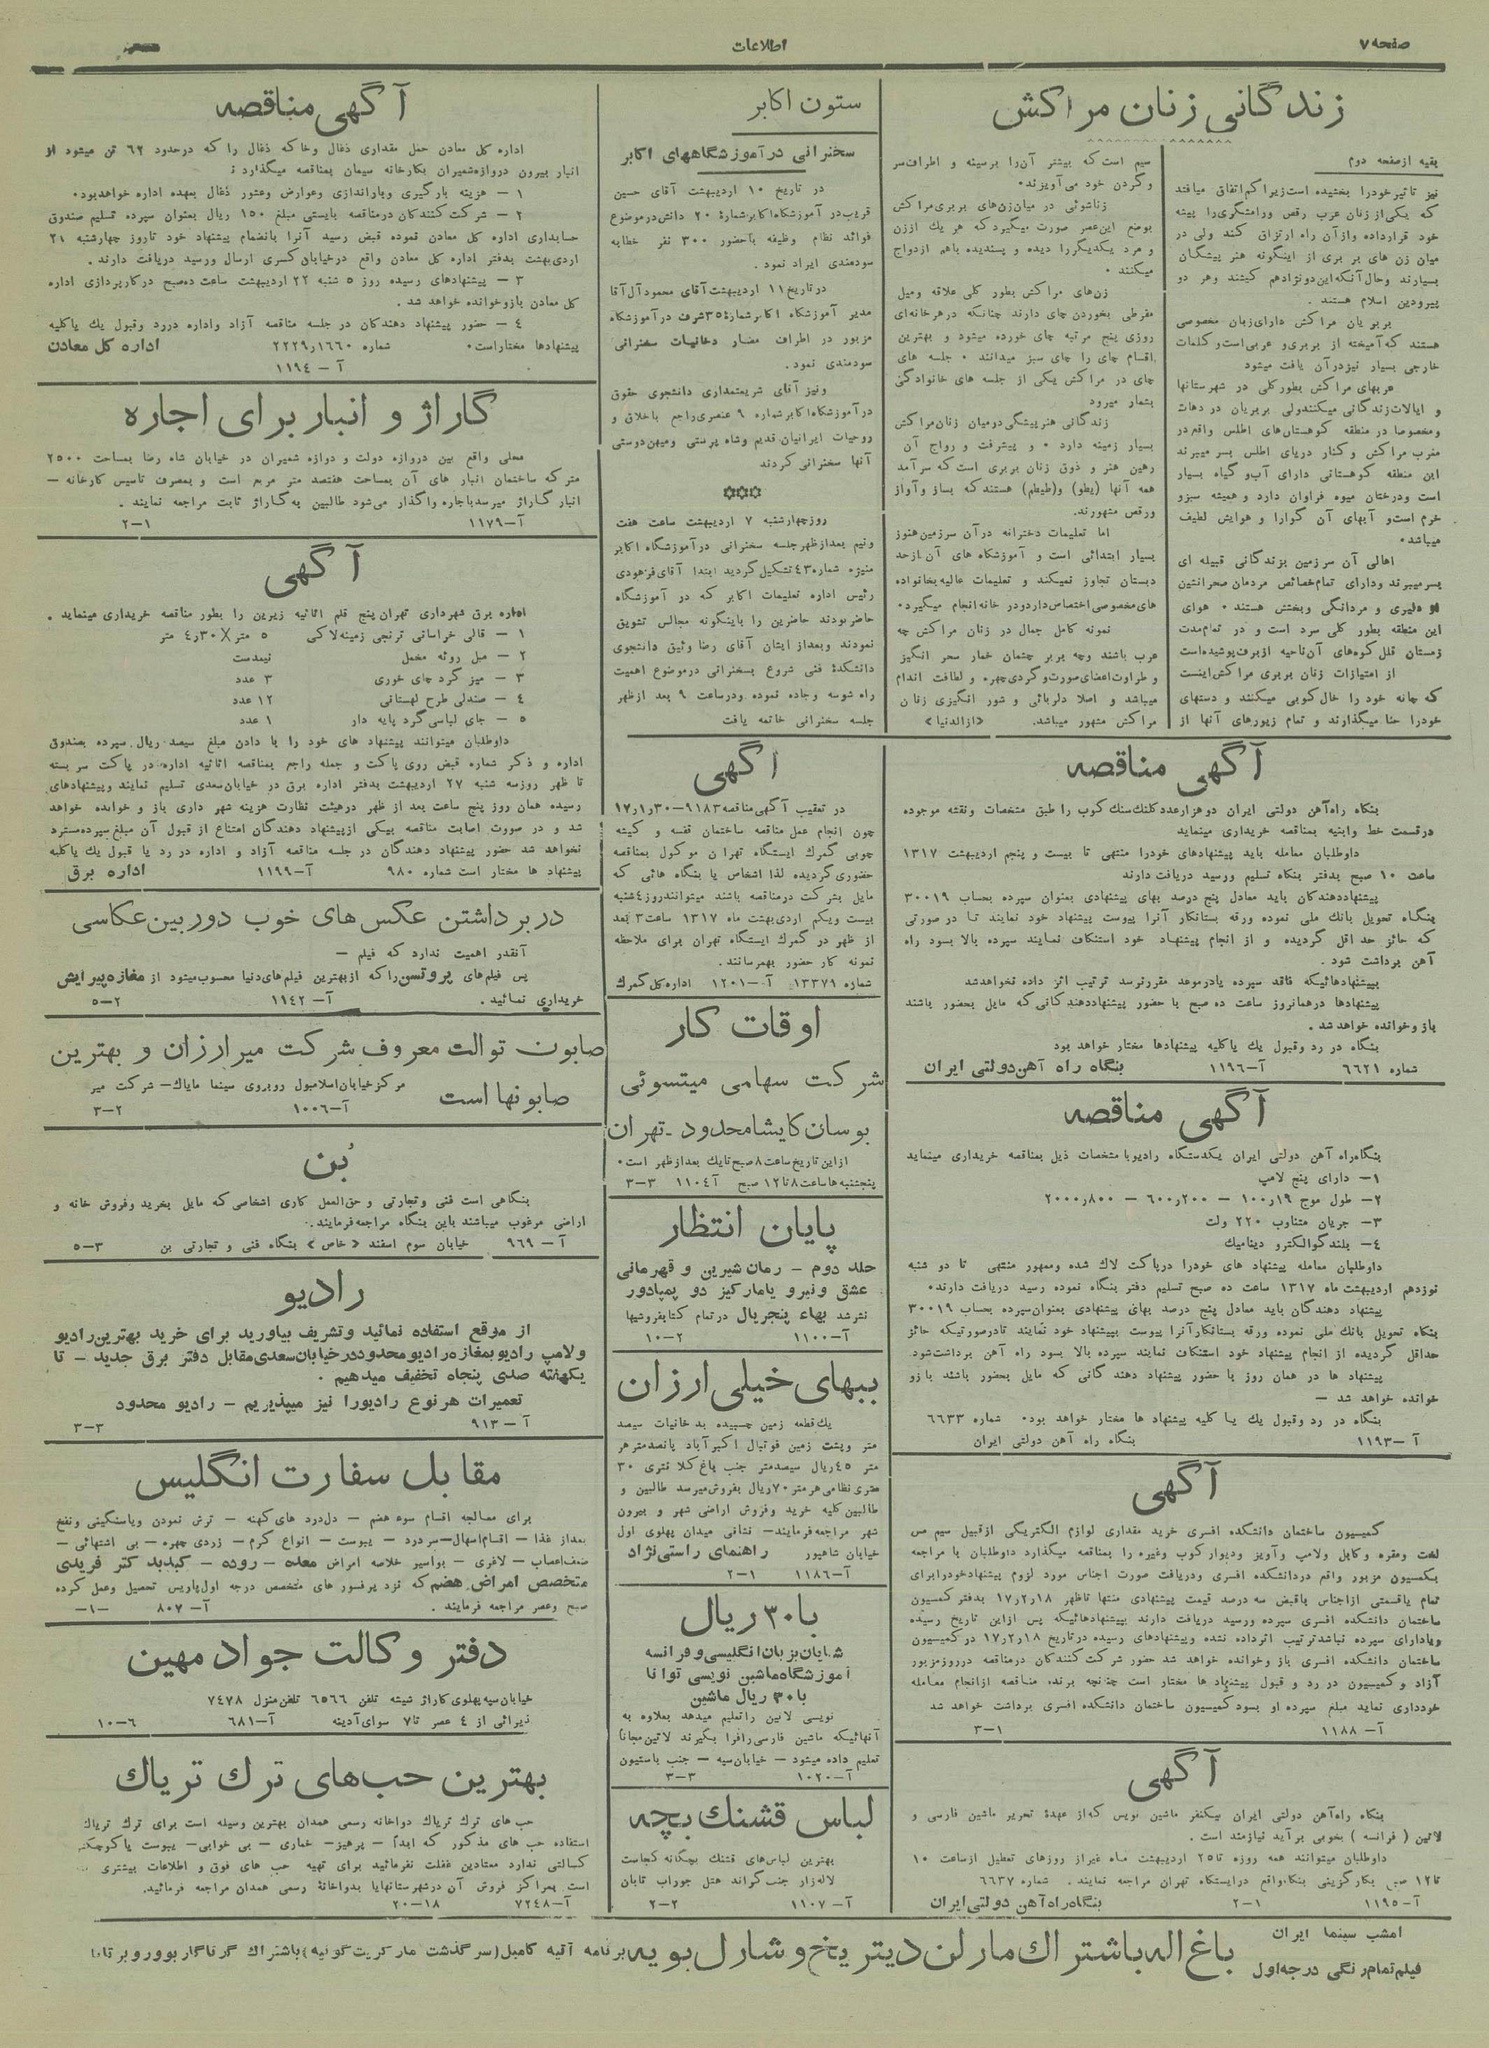 صفحه ۷
اطلاعات
زندگانی زنان مراکش
بقیه از صفحه دوم
نیز تاثیر خودرا بخشیده است زیرا کم اتفاق میافتد
که یکی از زنان عرب رقص ورامشگری را پیشه
خود قرارداده وازآن راه ارتزاق کند ولی در
میان زن های بر بری از اینگونه هنر پیشگان
بسیارند وحال آنکه این دونژادهم کیشند وهر دو
پیرودین اسلام هستند .
بربریان مراکش دارای زبان مخصوصی
هستند که آمیخته از بربری و عربی است و کلمات
خارجی بسیار نیز در آن یافت میشود
عربهای مراکش بطور کلی در شهرستانها
و ایالات زندگانی میکنند ولی بربریان در دهات
ومخصوصا در منطقه کوهستان های اطلس واقع در
مغرب مراکش و کنار دریای اطلس بسر میبرند
این منطقه کوهستانی دارای آب و گیاه بسیار
است ودرختان میوه فراوان دارد و همیشه سبز و
خرم است و آبهای آن گوارا و هوایش لطیف
میباشد.
اهالی آن سرزمین بزندگانی قبیله ای
بسر میبرند ودارای تمام خصائص مردمان صحرا نشین
از دلیری و مردانگی وبخشش هستند . هوای
این منطقه بطور کلی سرد است و در تمام مدت
زمستان قلل کوه های آن ناحیه از برف پوشیده است
از امتیازات زنان بربری مراکش اینست
که چانه خود را خال کوبی میکنند و دستهای
خودرا حنا میگذارند و تمام زیورهای آنها از
سیم است که بیشتر آن را برسینه و اطراف سر
و گردن خود می آویزند.
زناشوئی در میان زن های بربری مراکش
بوضع این عصر صورت میگیرد که هر یک از زن
و مرد یکدیگر را دیده و پسندیده باهم ازدواج
میکنند .
زن های مراکش بطور کلی علاقه ومیل
مفرطی بخوردن چای دارند چنانکه در هر خانه ای
روزی پنج مرتبه چای خورده میشود و بهترین
اقسام چای را چای سبز میدانند . جلسه های
چای در مراکش یکی از جلسه های خانوادگی
بشمار میرود
زندگانی هنرپیشگی درمیان زنان مراکش
بسیار زمینه دارد . و پیشرفت و رواج آن
رهین هنر و ذوق زنان بربری است که سرآمد
همه آنها (یطو) و (طیطم) هستند که بساز و آواز
ورقص مشهورند.
اما تعلیمات دخترانه در آن سرزمین هنوز
بسیار ابتدائی است و آموزشگاه های آن از حد
دبستان تجاوز نمیکند و تعلیمات عالیه بخانواده
های مخصوصی اختصاص دارد و در خانه انجام میگیرد.
نمونه کامل جمال در زنان مراکش چه
عرب باشند وچه بربر چشمان خمار سحر انگیز
و طراوت اعضای صورت و گردی چهره و لطافت اندام
میباشد و اصلا دلربائی و شور انگیزی زنان
مراکش مشهور میباشد. «از الدنیا»
آگهی مناقصه
بنگاه راه آهن دولتی ایران دو هزار عدد کلنگ سنگ کوب را طبق مشخصات ونقشه موجوده
در قسمت خط وابنیه بمناقصه خریداری مینماید
داوطلبان معامله باید پیشنهادهای خودرا منتهی تا بیست و پنجم اردیبهشت ۱۳۱۷
ساعت ۱۰ صبح بدفتر بنگاه تسلیم ورسید دریافت دارند
پیشنهاد دهندکان باید معادل پنج درصد بهای پیشنهادی بعنوان سپرده بحساب ۳۰۰۱۹
بنگاه تحویل بانک ملی نموده ورقه بستانکار آنرا پیوست پیشنهاد خود نمایند تا در صورتی
که حائز حد اقل گردیده و از انجام پیشنهاد خود استنکاف نمایند سپرده بالا بسود راه
آهن برداشت شود .
بپیشنهادهائیکه فاقد سپرده یادرموعد مقرر نرسد ترتیب اثر داده نخواهد شد
پیشنهادها درهمانروز ساعت ده صبح با حضور پیشنهاددهندکانی که مایل بحضور باشند
باز وخوانده خواهد شد .
بنگاه در رد وقبول یک یا کلیه پیشنهادها مختار خواهد بود
شماره ۶۶۲۱ آ-۱۱۹۶ بنگاه راه آهن دولتی ایران
آگهی مناقصه
بنگاه راه آهن دولتی ایران یکدستگاه رادیو با مشخصات ذیل بمناقصه خریداری مینماید
۱- دارای پنج لامپ
۲- طول موج ۱۹ر۱۰۰ - ۲۰۰ر۶۰۰ - ۸۰۰ر۲۰۰۰
۳- جریان متناوب ۲۲۰ ولت
۴- بلند گو الکترو دینامیک
داوطلبان معامله پیشنهاد های خودرا در پاکت لاک شده وممهور منتهی تا دو شنبه
نوزدهم اردیبهشت ماه ۱۳۱۷ ساعت ده صبح تسلیم دفتر بنگاه نموده رسید دریافت دارند.
پیشنهاد دهندگان باید معادل پنج درصد بهای پیشنهادی بعنوان سپرده بحساب ۳۰۰۱۹
بنگاه تحویل بانک ملی نموده ورقه بستانکار آنرا پیوست پیشنهاد خود نمایند تا درصورتیکه حائز
حداقل گردیده از انجام پیشنهاد خود استنکاف نمایند سپرده بالا بسود راه آهن برداشت شود
پیشنهاد ها در همان روز با حضور پیشنهاد دهند گانی که مایل بحضور باشند باز و
خوانده خواهد شد -
بنگاه در رد وقبول یک یا کلیه پیشنهاد ها مختار خواهد بود. شماره ۶۶۳۳
آ -۱۱۹۳ بنگاه راه آهن دولتی ایران
آگهی
کمیسیون ساختمان دانشکده افسری خرید مقداری لوازم الکتریکی از قبیل سیم مس
لخت ومقره و کابل ولامپ و آویز ودیوارکوب وغیره را بمناقصه میگذارد داوطلبان با مراجعه
بکمسیون مزبور واقع دردانشکده افسری ودریافت صورت اجناس مورد لزوم پیشنهاد خودرا برای
تمام یاقسمتی از اجناس باقبض سه درصد قیمت پیشنهادی منتها تاظهر ۱۷٫۲٫۱۸ بدفتر کمسیون
ساختمان دانشکده افسری سپرده ورسید دریافت دارند بپیشنهادهائیکه پس از این تاریخ رسیده
ویادارای سپرده نباشد ترتیب اثرداده نشده وپیشنهادهای رسیده در تاریخ ۱۷٫۲٫۱۸ در کمیسیون
ساختمان دانشکده افسری باز وخوانده خواهد شد حضور شرکت کنندکان درمناقصه درروز مزبور
آزاد و کمیسیون در رد و قبول پیشنهاد ها مختار است چنانچه برنده مناقصه ازانجام معامله
خودداری نماید مبلغ سپرده او بسود کمیسیون ساختمان دانشکده افسری برداشت خواهد شد
آ- ۱۱۸۸ ۳-۱
آگهی
بنگاه راه آهن دولتی ایران بیکنفر ماشین نویس که از عهدهٔ تحریر ماشین فارسی و
لاتین ( فرانسه ) بخوبی برآید نیازمند است .
داوطلبان میتوانند همه روزه تا ۲۵ اردیبهشت ماه غیر از روزهای تعطیل از ساعت ۱۰
تا ۱۲ صبح بکارگزینی بنگاه واقع درایستگاه تهران مراجعه نمایند . شماره ۶۶۳۷
آ-۱۱۹۵ ۲-۱ بنگاه راه آهن دولتی ایران
ستون اکابر
سخنرانی در آموزشگاههای اکابر
در تاریخ ۱۰ اردیبهشت آقای حسین
قریب در آموزشگاه اکابر شمارهٔ ۲۰ دانش در موضوع
فوائد نظام وظیفه باحضور ۳۰۰ نفر خطابه
سودمندی ایراد نمود .
در تاریخ ۱۱ اردیبهشت آقای محمود آل آقا
مدیر آموزشگاه اکابر شمارهٔ ۳۵ شرف در آموزشگاه
مزبور در اطراف مضار دخانیات سخنرانی
سودمندی نمود.
ونیز آقای شریعتمداری دانشجوی حقوق
در آموزشگاه اکابر شماره ۹ عنصری راجع باخلاق و
روحیات ایرانیان قدیم وشاه پرستی ومیهن دوستی
آنها سخنرانی کردند
روز چهارشنبه ۷ اردیبهشت ساعت هفت
ونیم بعدازظهر جلسه سخنرانی در آموزشگاه اکابر
منیژه شماره ۴۳ تشکیل گردید ابتدا آقای فرهودی
رئیس اداره تعلیمات اکابر که در آموزشگاه
حاضر بودند حاضرین را باینگونه مجالس تشویق
نمودند وبعداز ایشان آقای رضا وثیق دانشجوی
دانشکدهٔ فنی شروع بسخنرانی در موضوع اهمیت
راه شوسه وجاده نموده ودرساعت ۹ بعد ازظهر
جلسه سخنرانی خاتمه یافت
آگهی
در تعقیب آگهی مناقصه ۹۱۸۳-۱۷٫۱٫۳۰
چون انجام عمل مناقصه ساختمان قفسه و گیشه
چوبی گمرک ایستگاه تهران موکول بمناقصه
حضوری گردیده لذا اشخاص یا بنگاه هائی که
مایل بشرکت درمناقصه باشند میتوانند روز ۴ شنبه
بیست ویکم اردی بهشت ماه ۱۳۱۷ ساعت ۳ بعد
از ظهر در گمرک ایستگاه تهران برای ملاحظه
نمونه کار حضور بهمرسانند.
شماره ۱۳۳۷۹ آ-۱۲۰۱ اداره کل گمرک
اوقات کار
شرکت سهامی میتسوئی
بوسان کایشا محدود - تهران
از این تاریخ ساعت ۸ صبح تا یک بعدازظهر است.
پنجشنبه ها ساعت ۸ تا ۱۲ صبح آ-۱۱۰۴ ۳-۳
پایان انتظار
جلد دوم - رمان شیرین و قهرمانی
عشق و نیرو یا مارکیز دو پمپادور
نشر شد بهاء پنجریال در تمام کتابفروشیها
آ-۱۱۰۰ ۱۰-۲
ببهای خیلی ارزان
یک قطعه زمین چسبیده بدخانیات سیصد
متر وپشت زمین فوتبال اکبر آباد پانصد متر هر
متر ۴۵ ریال سیصدمتر جنب باغ کلانتری ۳۰
متری نظامی هر متر ۷۰ ریال بفروش میرسد طالبین و
طالبین کلیه خرید وفروش اراضی شهر و بیرون
شهر مراجعه فرمایند - نشانی میدان پهلوی اول
خیابان شاهپور راهنمای راستی نژاد
آ-۱۱۸۶ ۲-۱
با ۳۰ ریال
شایان بزبان انگلیسی و فرانسه
آموزشگاه ماشین نویسی توانا
با ۳۰ ریال ماشین
نویسی لاتین را تعلیم میدهد بعلاوه به
آنهائیکه ماشین فارسی رافرا بگیرند لاتین مجانا
تعلیم داده میشود - خیابان سپه - جنب باستیون
آ-۱۰۲۰ ۳-۳
لباس قشنگ بچه
بهترین لباس های قشنگ بچگانه کجاست
لاله زار جنب گراند هتل جوراب تابان
آ- ۱۱۰۷ ۲-۲
آگهی مناقصه
اداره کل معادن حمل مقداری ذغال وخاکه ذغال را که درحدود ۶۲ تن میشود از
انبار بیرون دروازه شمیران بکارخانه سیمان بمناقصه میگذارد :
۱ - هزینه بارگیری وباراندازی وعوارض وعشور ذغال بعهده اداره خواهد بود.
۲ - شرکت کنندکان در مناقصه بایستی مبلغ ۱۵۰ ریال بعنوان سپرده تسلیم صندوق
حسابداری اداره کل معادن نموده قبض رسید آنرا بانضمام پیشنهاد خود تا روز چهارشنبه ۲۱
اردی بهشت بدفتر اداره کل معادن واقع درخیابان کسری ارسال ورسید دریافت دارند .
۳ - پیشنهادهای رسیده روز ۵ شنبه ۲۲ اردیبهشت ساعت ده صبح در کارپردازی اداره
کل معادن باز وخوانده خواهد شد .
۴ - حضور پیشنهاد دهندکان در جلسه مناقصه آزاد واداره دررد وقبول یک یا کلیه
پیشنهادها مختاراست. شماره ۱۶۶۰ر۲۲۲۹ اداره کل معادن
آ - ۱۱۹۴
گاراژ و انبار برای اجاره
محلی واقع بین دروازه دولت و دوازه شمیران در خیابان شاه رضا بمساحت ۲۵۰۰
متر که ساختمان انبار های آن بمساحت هفتصد متر مربع است و بمصرف تاسیس کارخانه -
انبار گاراژ میرسد باجاره واگذار می شود طالبین به گاراژ ثابت مراجعه نمایند .
آ-۱۱۷۹ ۲-۱
آگهی
اداره برق شهرداری تهران پنج قلم اثاثیه زیرین را بطور مناقصه خریداری مینماید .
۱ - قالی خراسانی ترنجی زمینه لاکی ۵ متر × ۳۰ر۴ متر
۲ - مبل رویه مخمل نیمدست
۳ - میز گرد چای خوری ۳ عدد
۴ - صندلی طرح لهستانی ۱۲ عدد
۵ - جای لباسی گرد پایه دار ۱ عدد
داوطلبان میتوانند پیشنهاد های خود را با دادن مبلغ سیصد ریال سپرده بصندوق
اداره و ذکر شماره قبض روی پاکت و جمله راجع بمناقصه اثاثیه اداره در پاکت سر بسته
تا ظهر روز سه شنبه ۲۷ اردیبهشت بدفتر اداره برق در خیابان سعدی تسلیم نمایند وپیشنهادهای
رسیده همان روز پنج ساعت بعد از ظهر درهیئت نظارت هزینه شهر داری باز و خوانده خواهد
شد و در صورت اصابت مناقصه بیکی ازپیشنهاد دهندگان امتناع از قبول آن مبلغ سپرده مسترد
نخواهد شد حضور پیشنهاد دهندگان در جلسه مناقصه آزاد و اداره در رد یا قبول یک یا کلیه
پیشنهاد ها مختار است شماره ۹۸۰ آ-۱۱۹۹ اداره برق
در برداشتن عکس های خوب دوربین عکاسی
آنقدر اهمیت ندارد که فیلم -
پس فیلم های پروتسن را که از بهترین فیلم های دنیا محسوب میشود از مغازه پیرایش
خریداری نمائید . آ- ۱۱۴۲ ۵-۲
صابون توالت معروف شرکت میر ارزان و بهترین
صابونها است
مرکز خیابان اسلامبول روبروی سینما مایاک - شرکت میر
آ-۱۰۰۶ ۳-۲
بُن
بنگاهی است فنی وتجارتی و حق العمل کاری اشخاصی که مایل بخرید وفروش خانه و
اراضی مرغوب میباشند باین بنگاه مراجعه فرمایند.
آ- ۹۶۹ خیابان سوم اسفند «خاص» بنگاه فنی و تجارتی بن ۵-۳
رادیو
از موقع استفاده نمائید وتشریف بیاورید برای خرید بهترین رادیو
ولامپ رادیو بمغازه رادیو محدود در خیابان سعدی مقابل دفتر برق جدید - تا
یکهفته صدی پنجاه تخفیف میدهیم .
تعمیرات هر نوع رادیورا نیز میپذیریم - رادیو محدود
آ - ۹۱۳ ۳-۳
مقابل سفارت انگلیس
برای معالجه اقسام سوء هضم - دل درد های کهنه - ترش نمودن ویاسنگینی ونفخ
بعداز غذا - اقسام اسهال - سردرد - یبوست - انواع کرم - زردی چهره - بی اشتهائی -
ضعف اعصاب - لاغری - بواسیر خلاصه امراض معده - روده - کبد بد کتر فریدنی
متخصص امراض هضم که نزد پرفسور های متخصص درجه اول پاریس تحصیل وعمل کرده
صبح وعصر مراجعه فرمایند . آ- ۸۰۷ -۱-
دفتر وکالت جواد مهین
خیابان سپه پهلوی کاراژ شیشه تلفن ۶۵۶۶ تلفن منزل ۷۴۷۸
پذیرائی از ۴ عصر تا ۷ سوای آدینه آ-۶۸۱ ۱۰-۶
بهترین حب های ترک تریاک
حب های ترک تریاک دواخانه رسمی همدان بهترین وسیله است برای ترک تریاک
استفاده حب های مذکور که ابدا - پرهیز - خماری - بی خوابی - یبوست یا کوچکترین
کسالتی ندارد معتادین غفلت نفرمائید برای تهیه حب های فوق و اطلاعات بیشتری
است بمراکز فروش آن در شهرستانها یا بدواخانهٔ رسمی همدان مراجعه فرمائید.
آ-۷۲۴۸ ۲۰-۱۸
امشب سینما ایران
فیلم تمام رنگی درجه اول
باغ اله باشتراک مارلن دیتریخ و شارل بویه
برنامه آتیه کامیل (سرگذشت مارگریت گوتیه) باشتراک گرتاگاربو و روبرتا